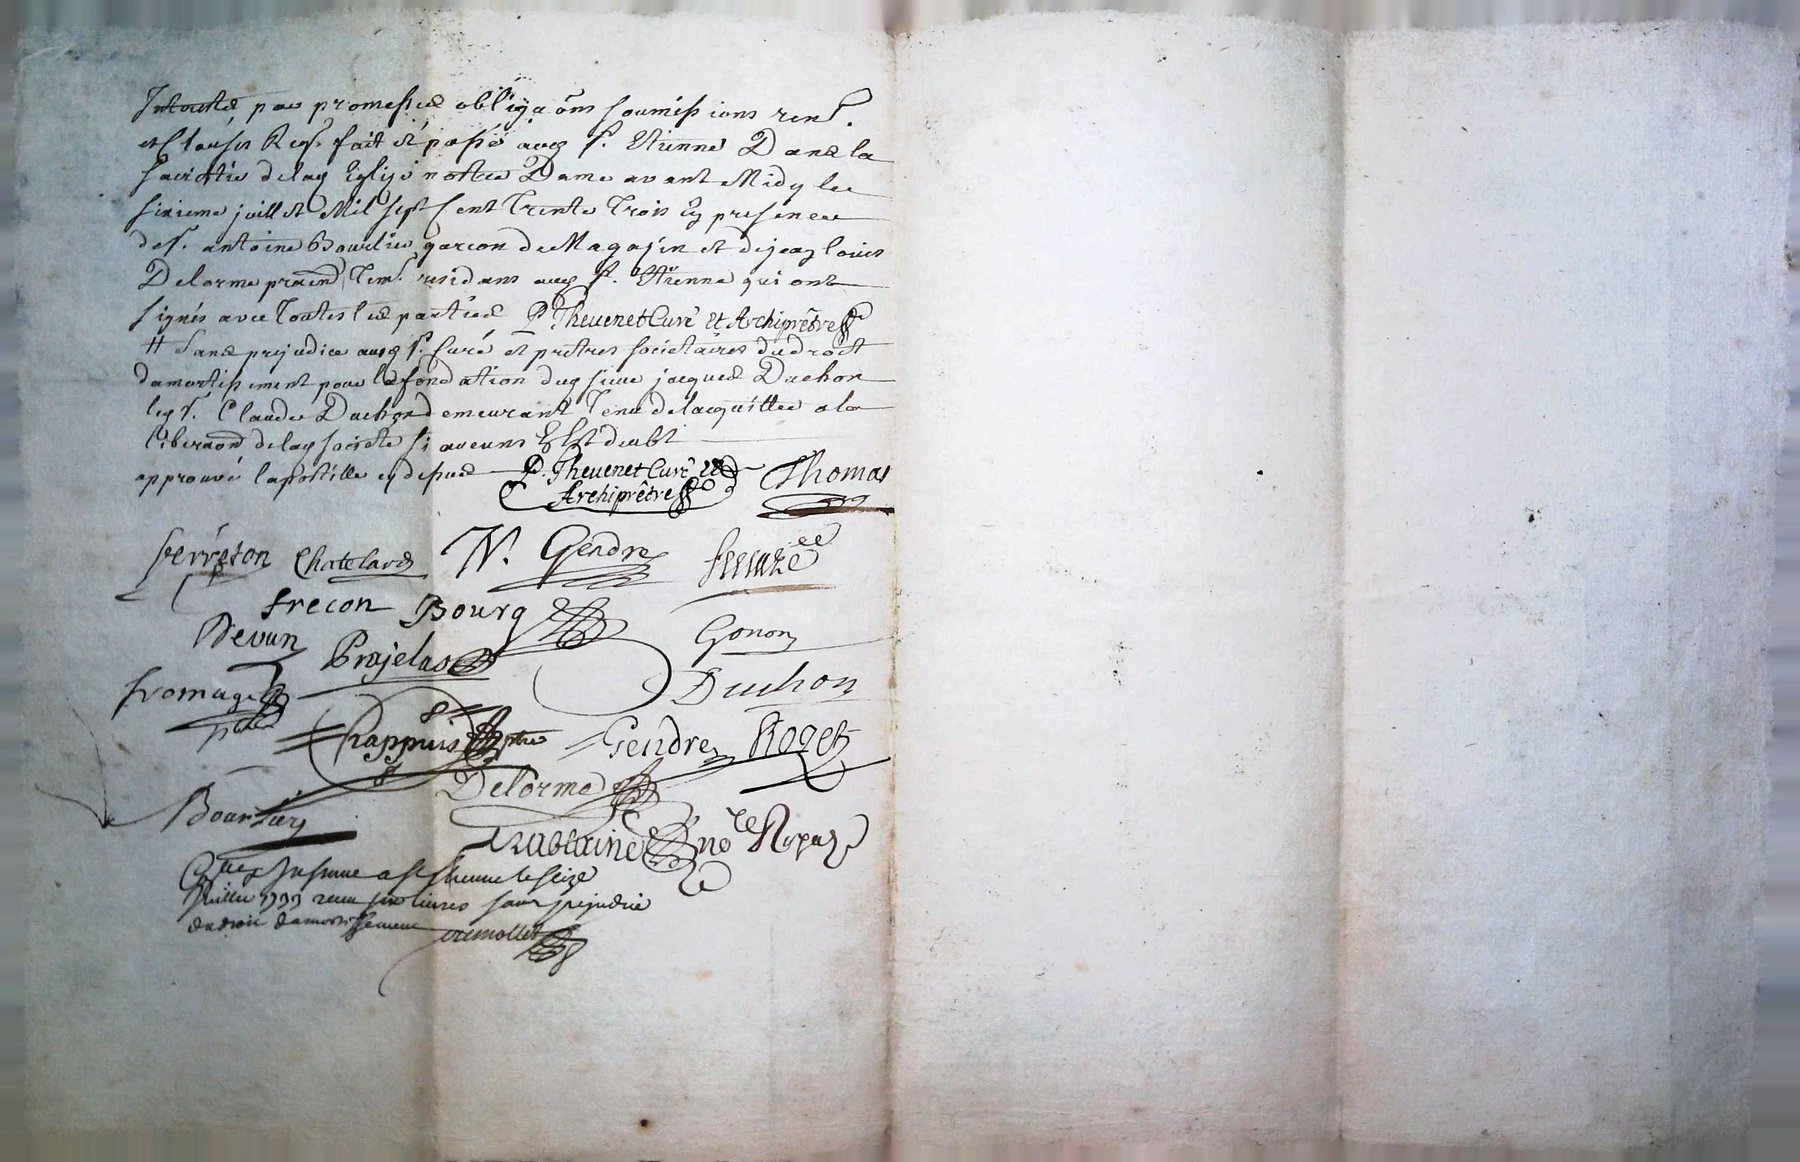 par promesses obliga ons soumissions ren.
et clauses Req. fait et passé aud St. Etienne Dans la
sacristie de lad Eglise notre Dame avant Midy le
sixieme juillet Mil sept cent trente trois En presence
de s. antoine Bourlier garcon de Magasin et de jean louis
Delorme praen tem. residans aud St. Etienne qui ont
signés avec toutes les parties P. Thevenet Curé et Archiprêtre
# sans prejudice aud s. Curé et prêtres societaires du droit
damortissement pour la fondation dud sieur jacques Duchon
led s. Claude Duchon demeurant tenu de lacquitter a la
de lad societé si aucuns Est deubt
approuvé lapostille cy dessus P. Thevenet Curé et Thomas
Archiprêtre
ferréton Chatelard N. Gendre
frecon Bourg
Devun Prajelas Gonon
fromage Duchon
ptre
Chappuis ptre Gendre Roget
Delorme
Bourlier
no re Royal
a St Etienne le seize
juillet 1733 receu six livres sans prejudice
du droit damortissement